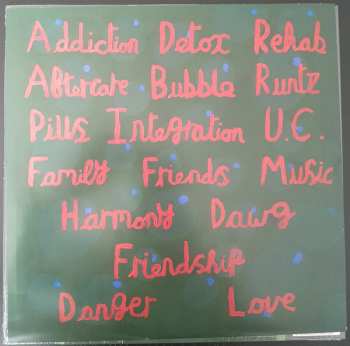 Addiction Detox Rehab
Aftercare Bubble Runtz
Pills Integration U.C.
Family Friends Music
Harmony Dawg
Friendship
Danger Love